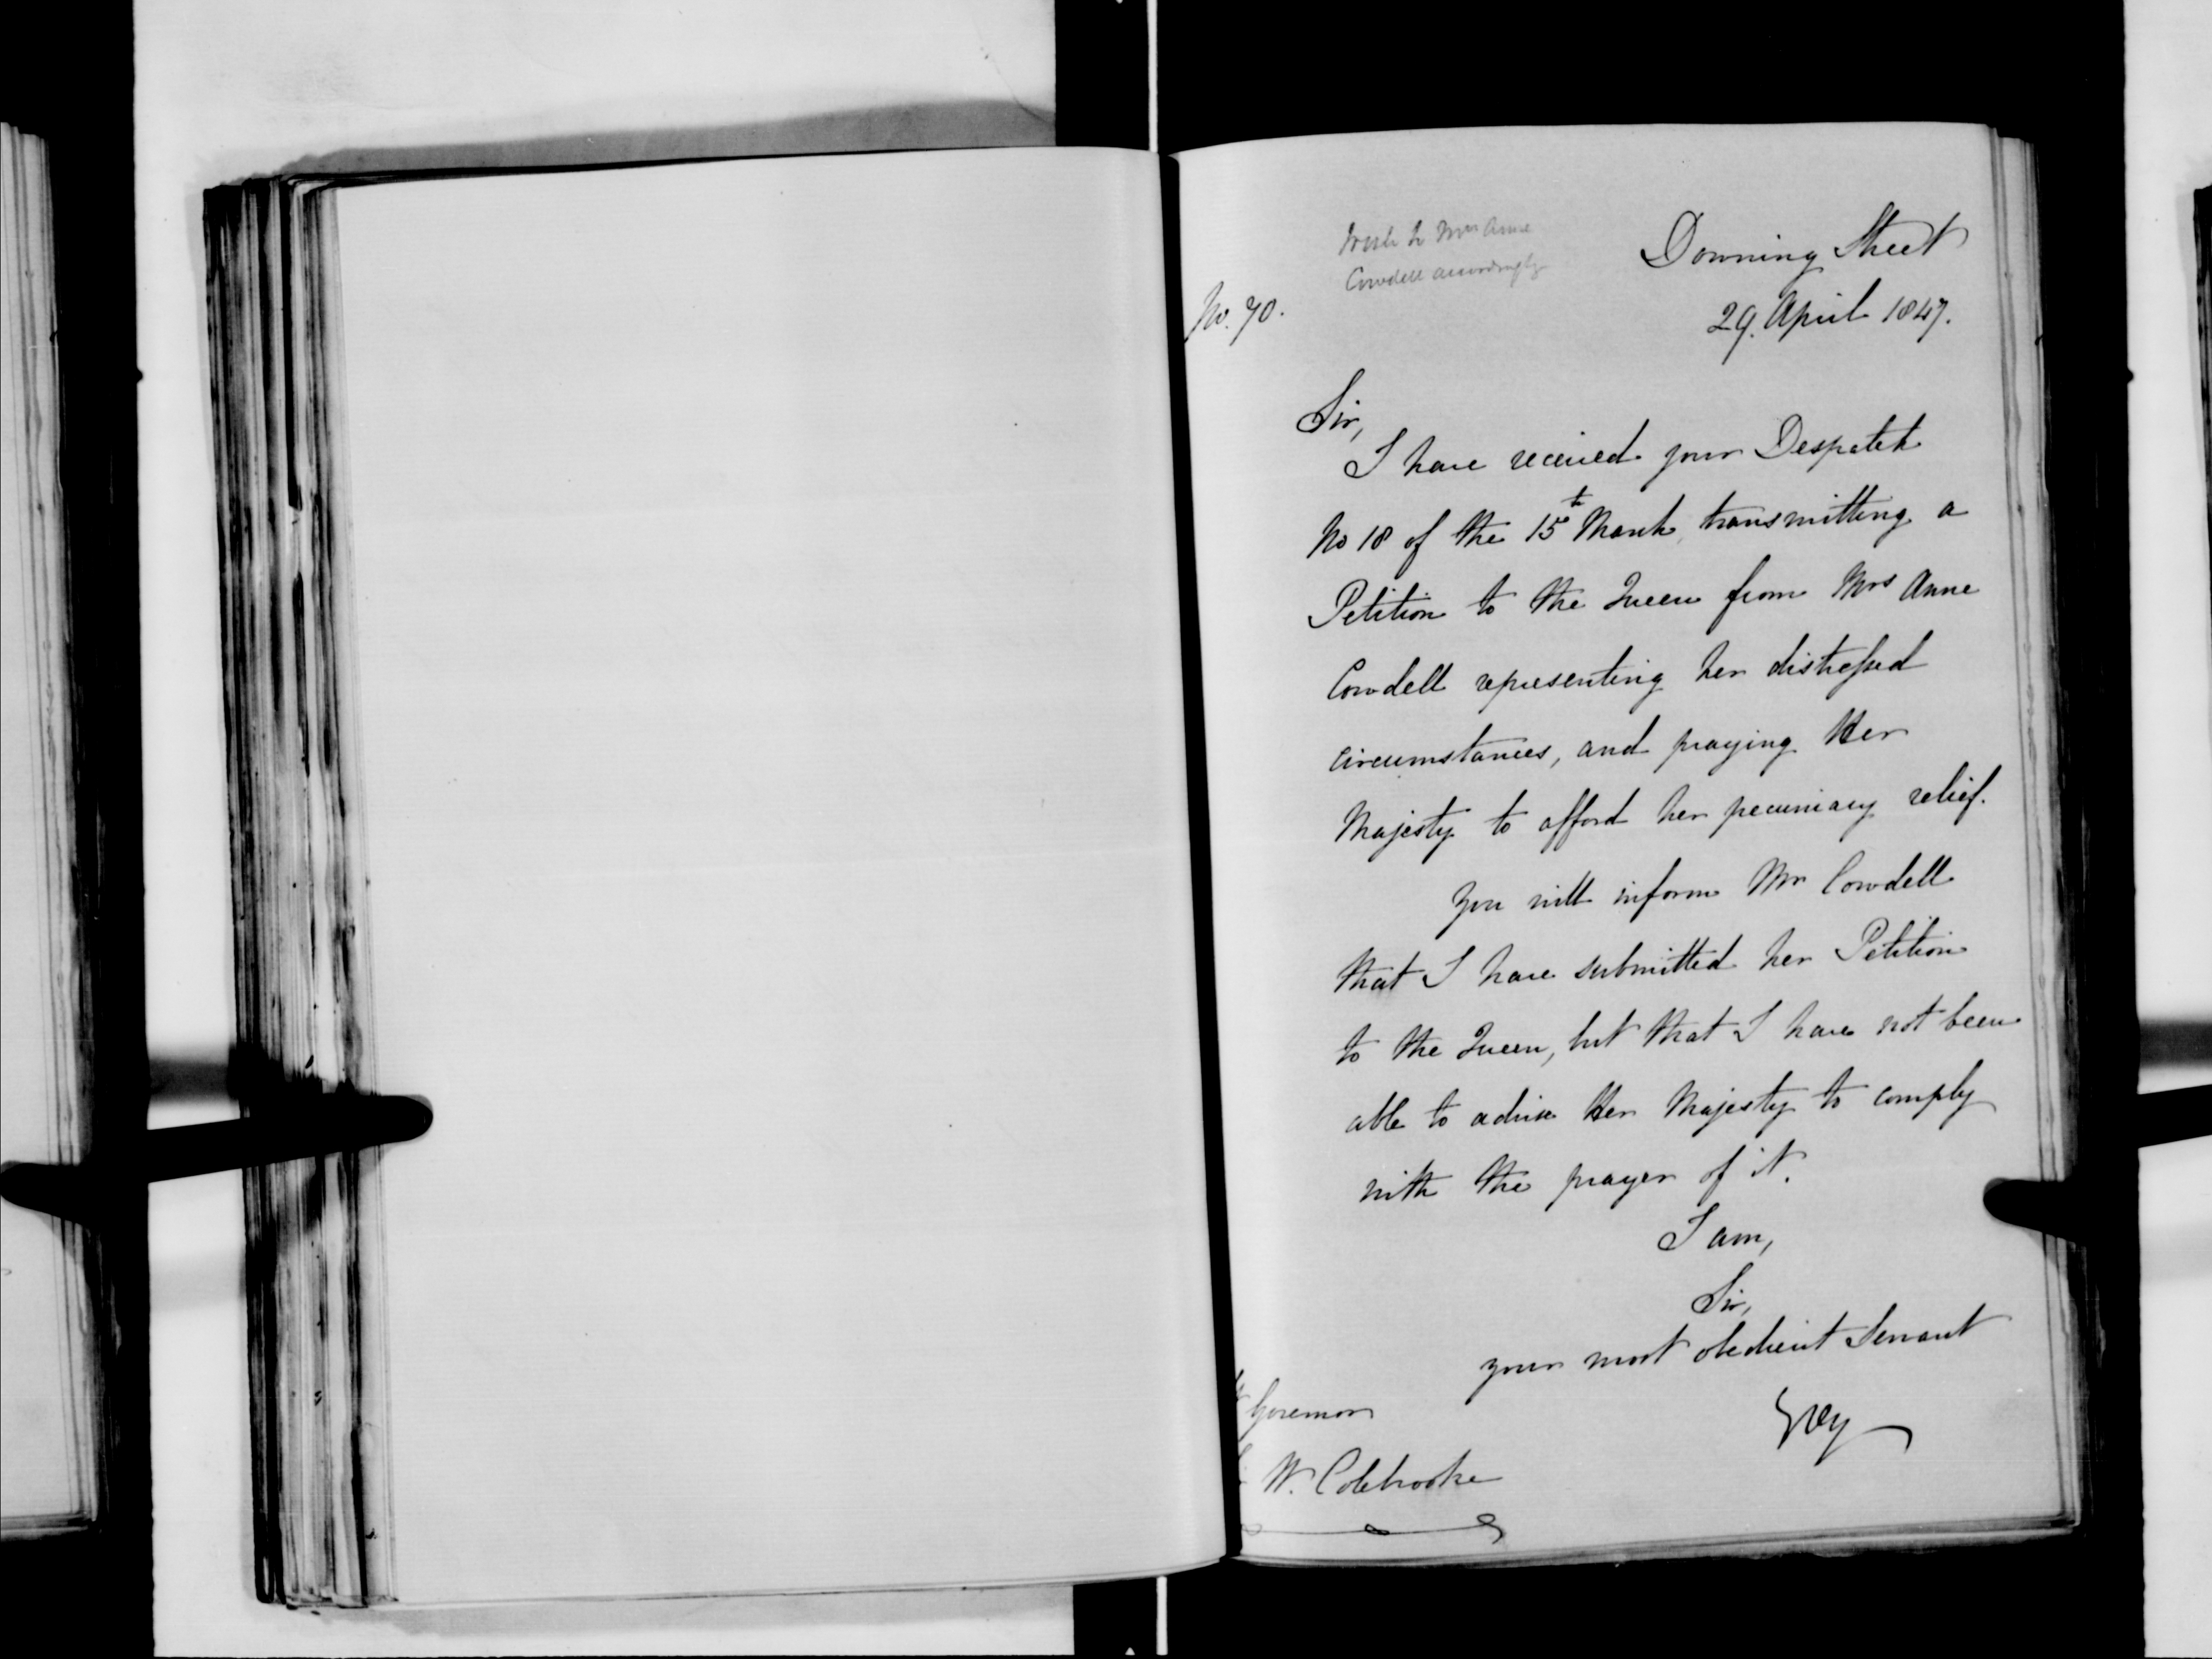 Write to Mrs Anne
Cowdell accordingly
Downing Street
No. 70.
29. April 1847.
Sir,
I have received your Despatch
No 18 of the 15th March, transmitting a
Petition to the Queen from Mrs Anne
Cowdell representing her distressed
circumstances, and praying Her
Majesty to afford her pecuniary relief.
You will inform Mrs Cowdell
that I have submitted her Petition
to the Queen, but that I have not been
able to advise Her Majesty to comply
with the prayer of it.
I am,
Sir,
your most obedient Servant
Grey
Governor
W. Colebrooke